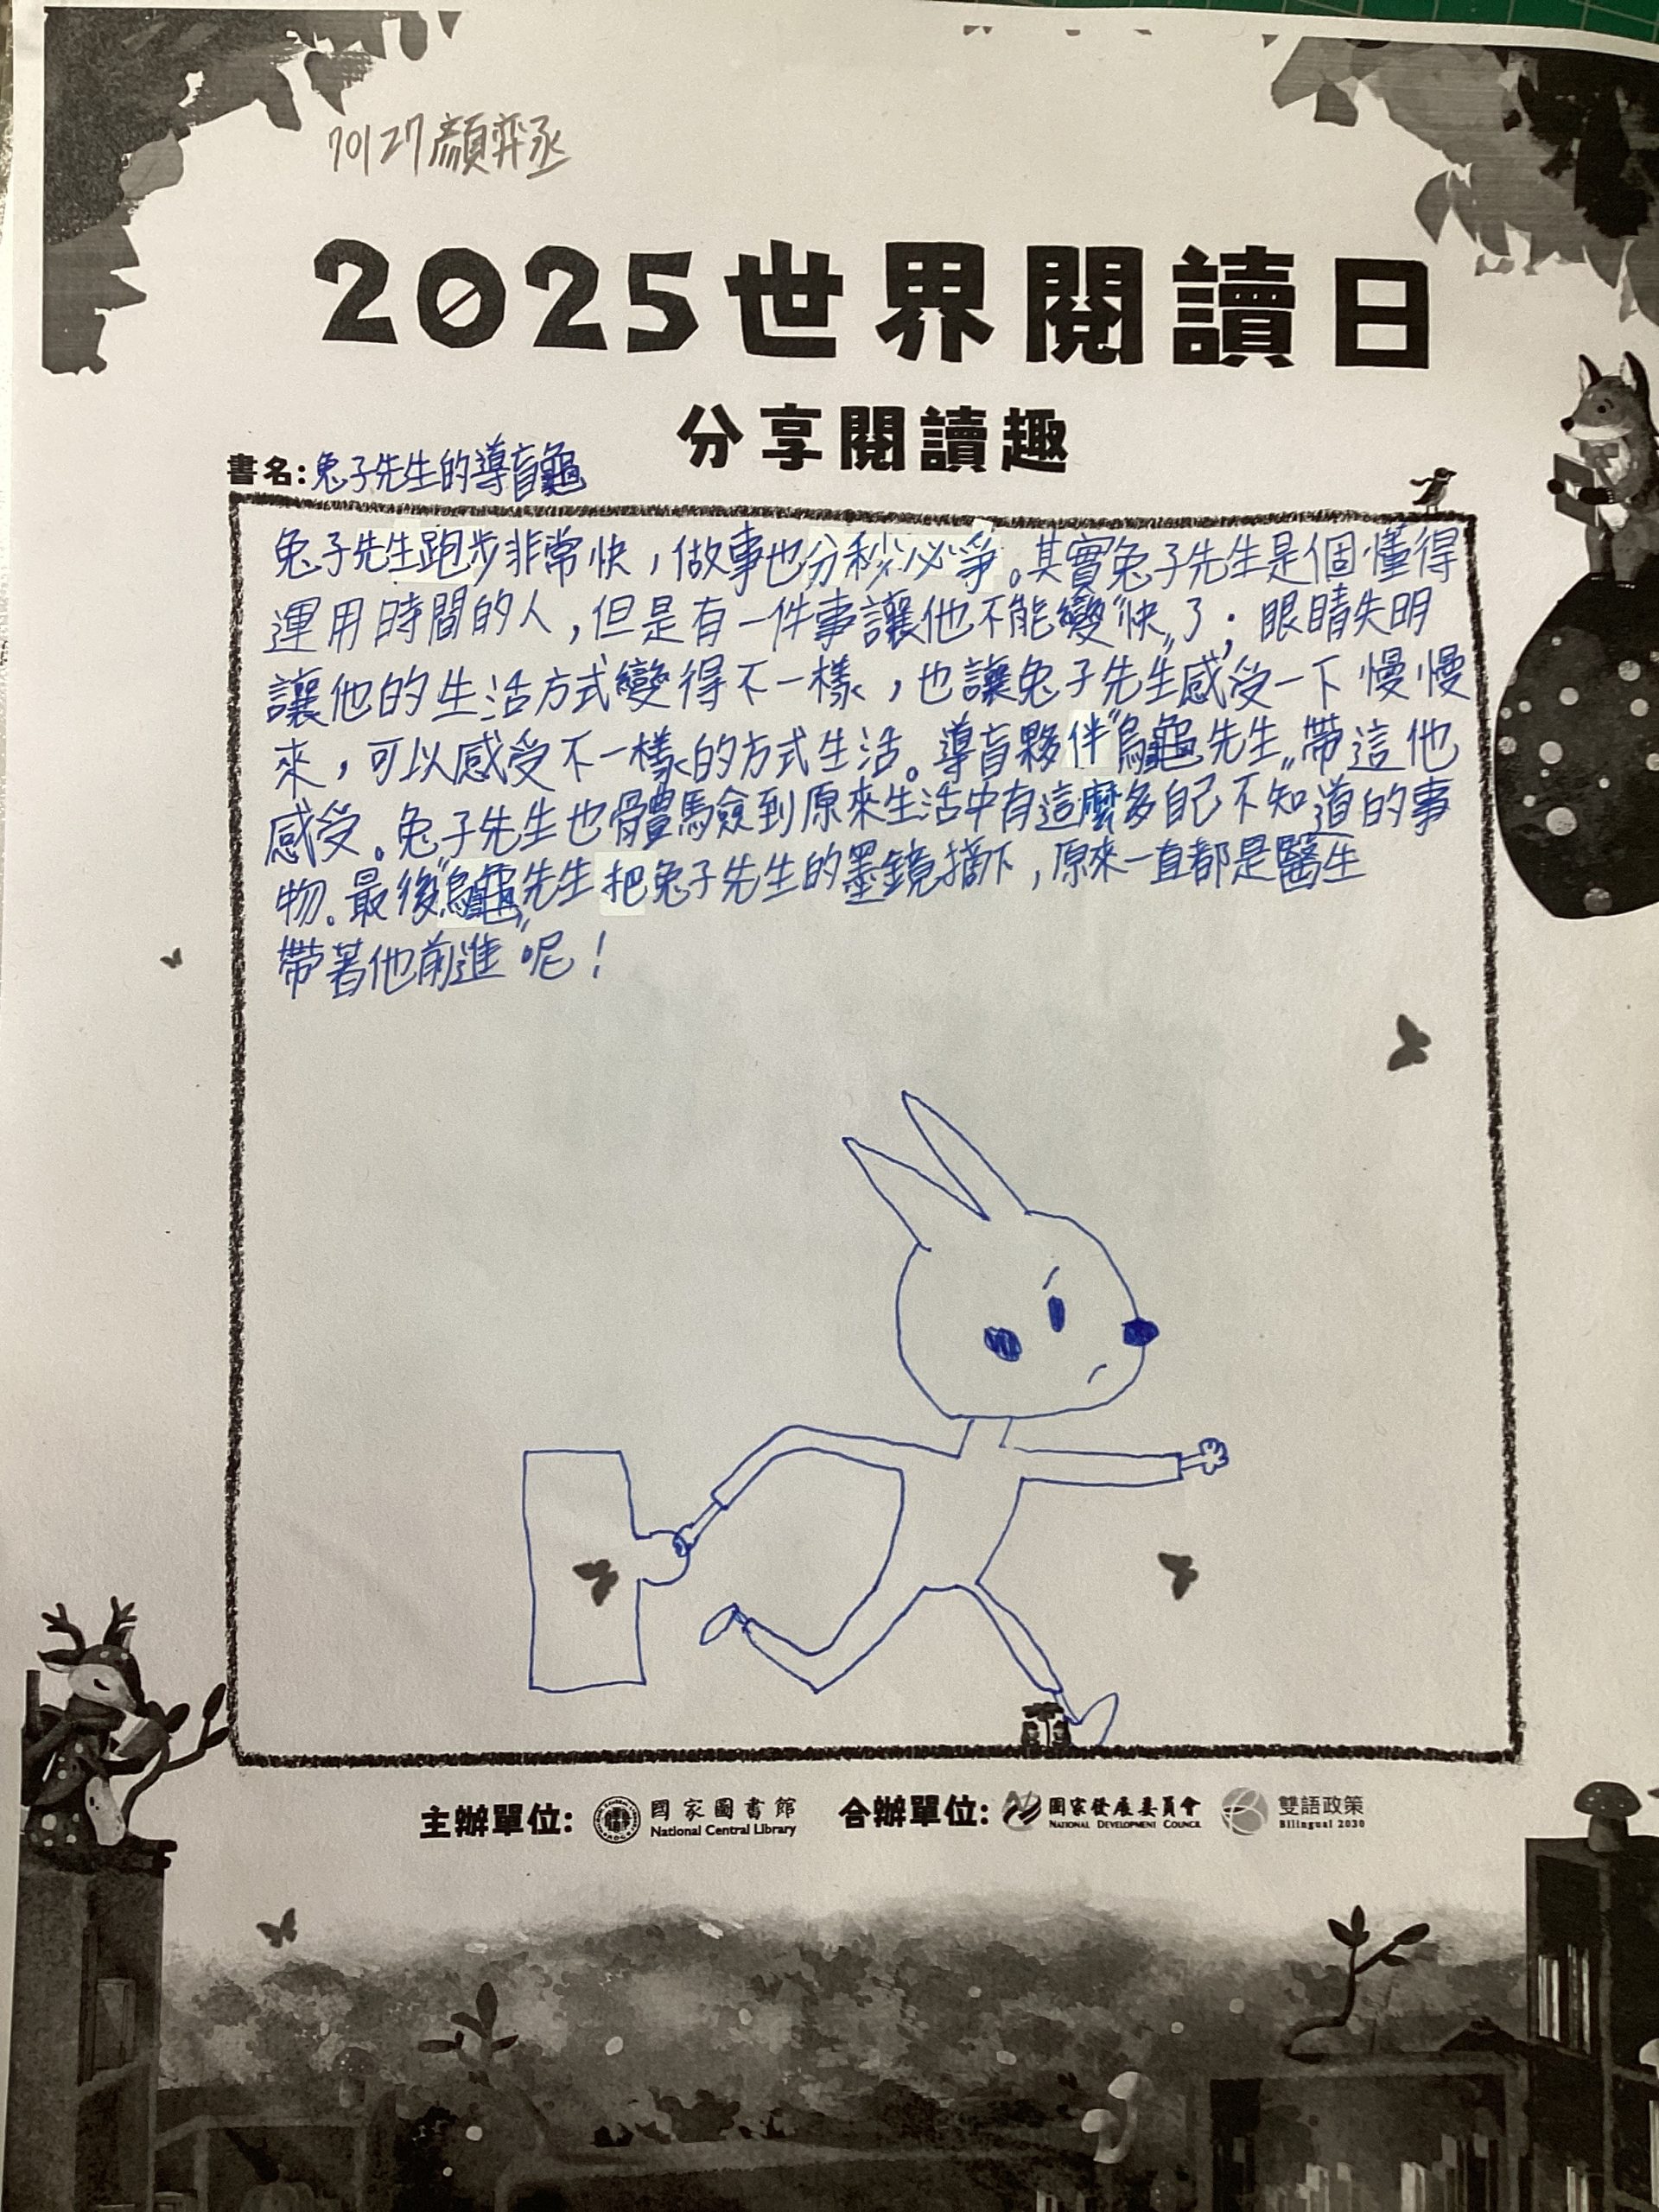 70127顏弈丞
2025世界閱讀日
分享閱讀趣
書名:兔子先生的導盲龜
兔子先生跑步非常快，做事也分秒必爭。其實兔子先生是個懂得
運用時間的人，但是有一件事讓他不能變“快”了；眼睛失明
讓他的生活方式變得不一樣，也讓兔子先生感受一下慢慢
來，可以感受不一樣的方式生活。導盲夥伴“烏龜先生”帶這他
感受。兔子先生也體驗到原來生活中有這麼多自己不知道的事
物。最後“烏龜”先生把兔子先生的墨鏡摘下，原來一直都是醫生
帶著他前進呢！
主辦單位: 國家圖書館 National Central Library 合辦單位: 國家發展委員會 NATIONAL DEVELOPMENT COUNCIL 雙語政策 Bilingual 2030